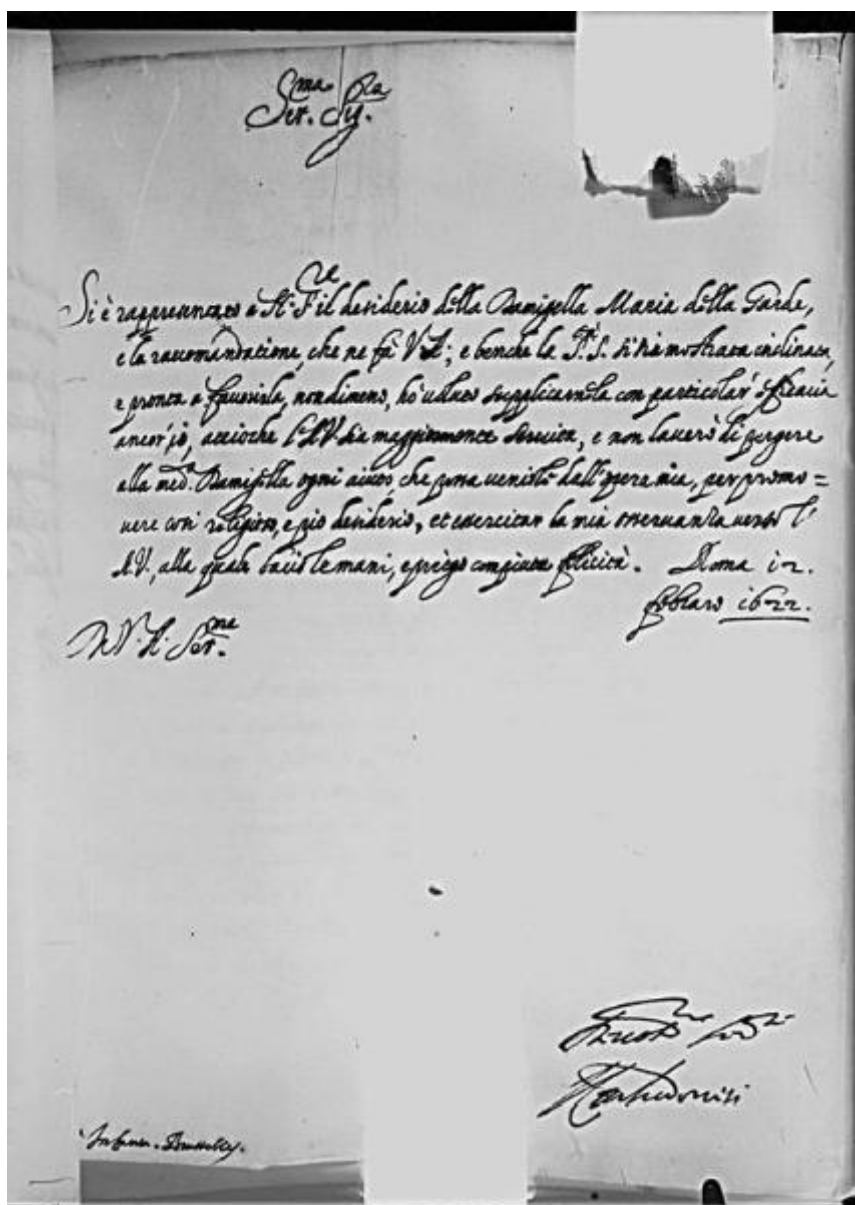 Ser.ma Sig.ra
Si è rappresentato a N. S.re il desiderio della Damigella Maria della Garde,
e la raccomandatione, che ne fà V.A.; e benche la S.tà S. si sia mostrata inclinata,
e pronta a favorirla, nondimeno, hò voluto supplicarnela con particolar' efficacia
ancor' io, accioche l'A.V. sia maggiormente servita, e non lascerò di porgere
alla med.a Damigella ogni aiuto, che possa venirle dall'opera mia, per promo=
vere così religioso, e pio desiderio, et esercitar la mia osservanza verso l'
A.V., alla quale bacio le mani, e prego compiuta felicità. Roma 12.
febraro 1622.
Di V. A. Ser.ma
Infanta. Brusselles.